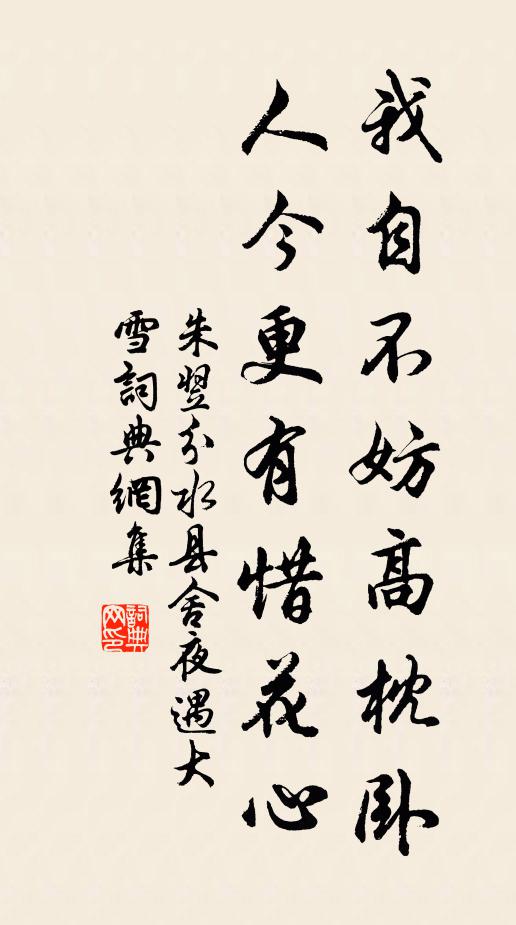 我自不妨高枕卧
人今更有惜花心
朱翌分水县舍夜遇大
雪詞典網集
詞典
网印